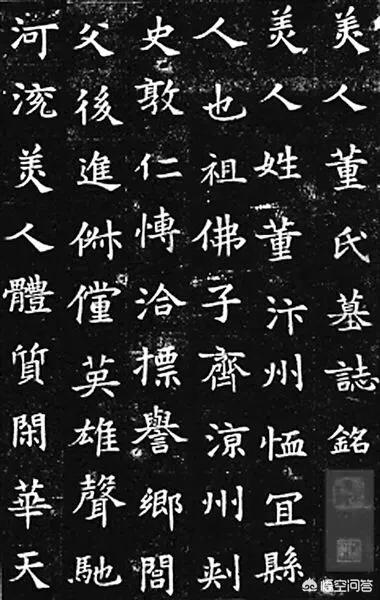 美人董氏墓誌銘
美人姓董汴州恤冝縣
人也祖佛子齊涼州刾
史敦仁愽洽摽譽鄉閭
父後進俶儻英雄聲馳
河流美人體質閑華天
悟空问答